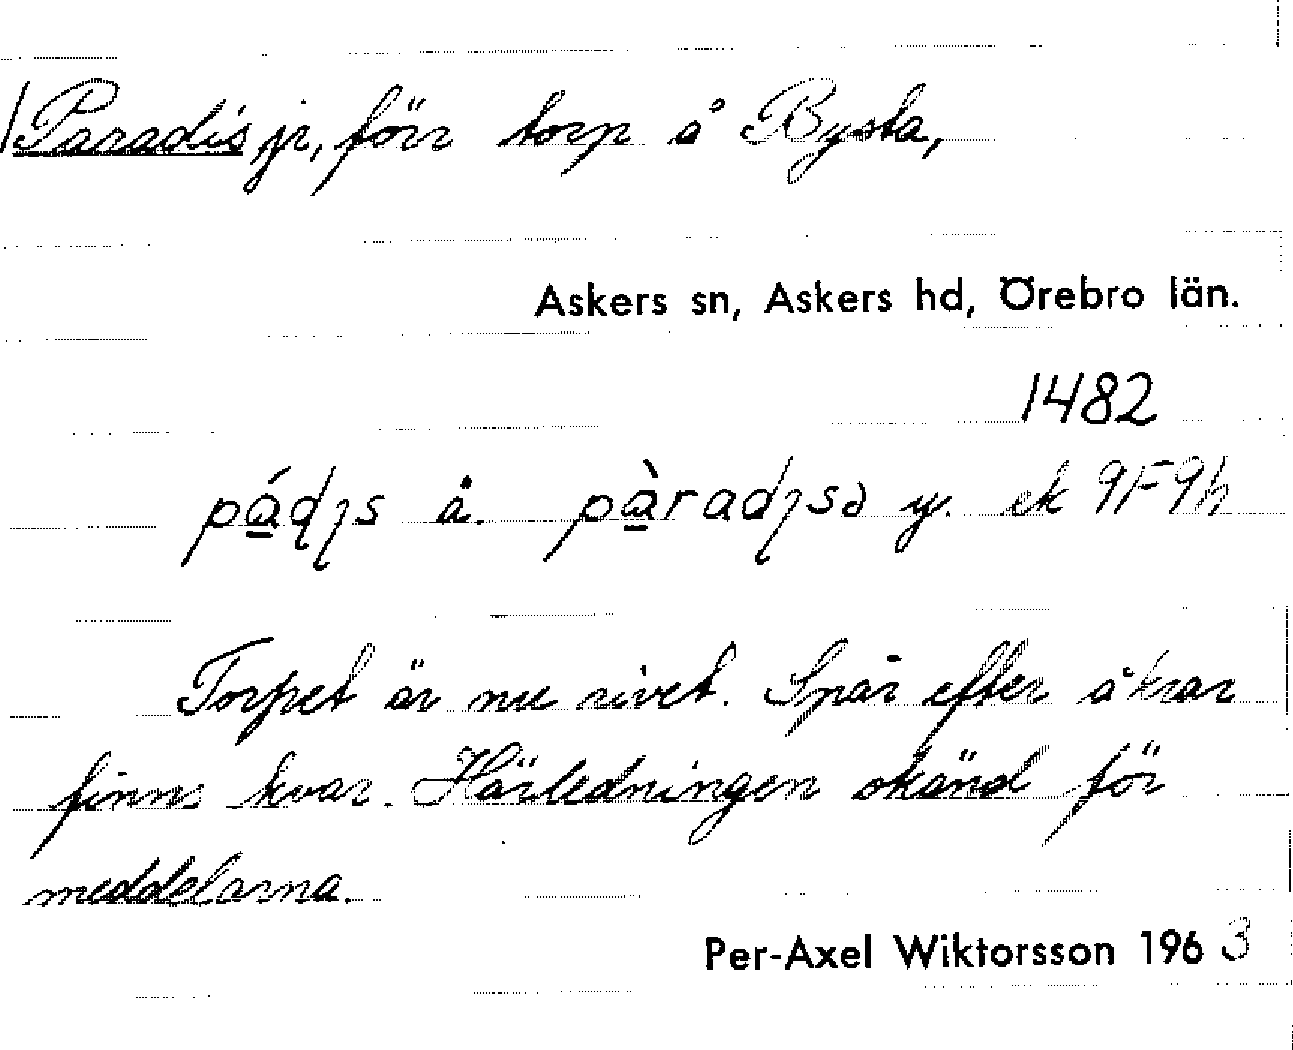 Paradis jr, förr torp å Bysta,
Askers sn, Askers hd, Örebro län.
1482
å. y. ek 9F9h
Torpet är nu rivet. Spår efter åkrar
finns kvar. Härledningen okänd för
meddelarna.
Per-Axel Wiktorsson 1963